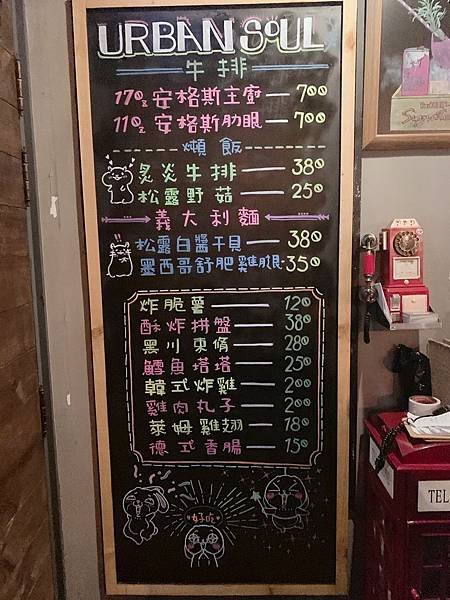 URBAN SOUL
牛排
17oz 安格斯主廚 — 700
11oz 安格斯肋眼 — 700
燉飯
炙炎牛排 — 380
松露野菇 — 250
義大利麵
松露白醬干貝 — 380
墨西哥舒肥雞腿 - 350
炸脆薯 — 120
酥炸拼盤 — 380
黑川束脩 — 280
鱈魚塔塔 — 250
韓式炸雞 — 200
雞肉丸子 — 200
萊姆雞翅 — 180
德式香腸 — 150
好吃
TEL